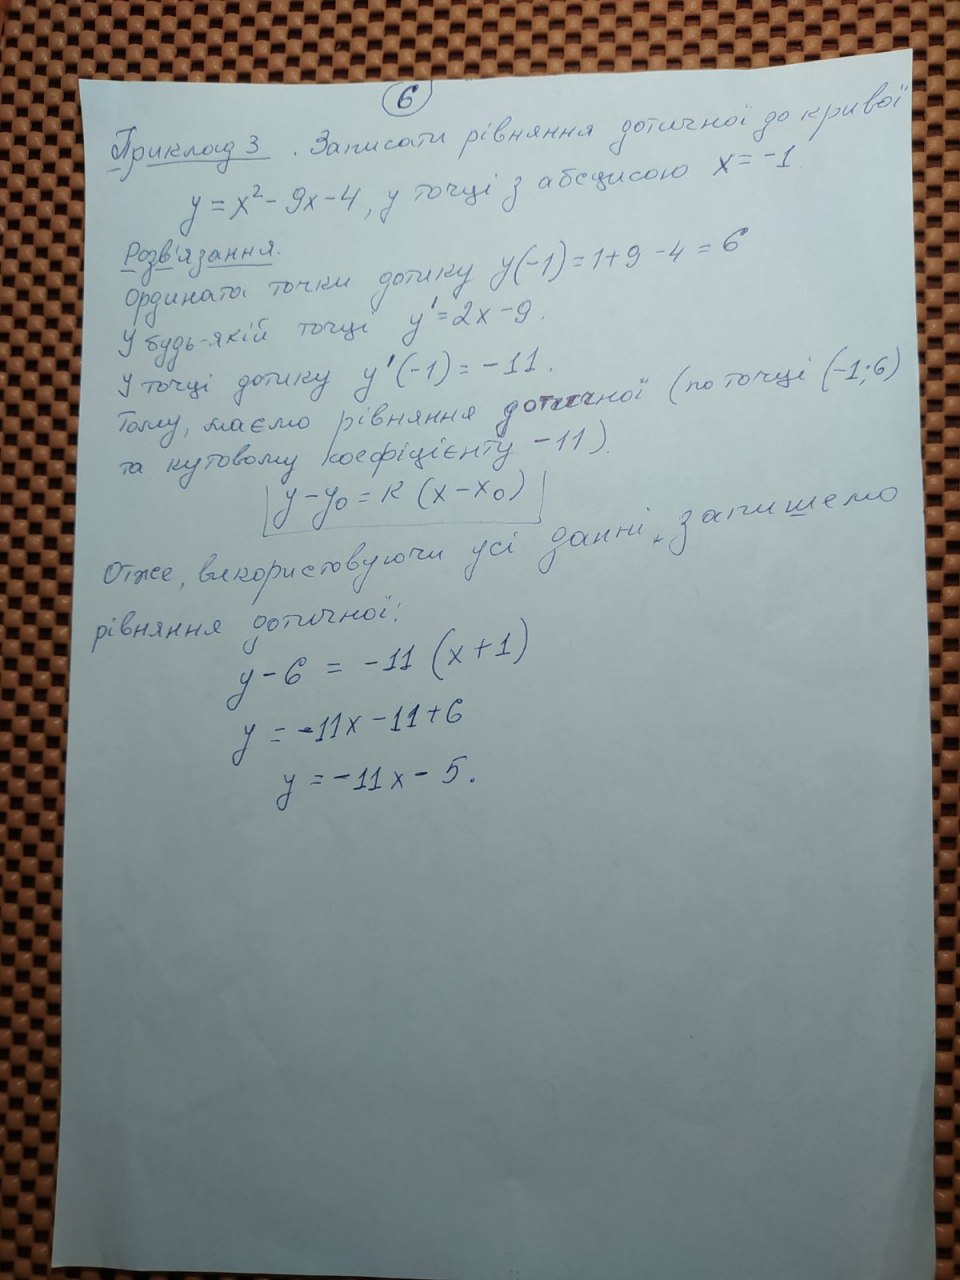 6
Приклад 3. Записати рівняння дотичної до кривої
y = x² - 9x - 4, у точці з абсцисою x = -1.
Розв'язання.
Ордината точки дотику y(-1) = 1 + 9 - 4 = 6
У будь-якій точці y' = 2x - 9.
У точці дотику y'(-1) = -11.
Тому, маємо рівняння дотичної (по точці (-1; 6)
та кутовому коефіцієнту -11).
y - y₀ = k (x - x₀)
Отже, використовуючи усі данні, запишемо
рівняння дотичної:
y - 6 = -11 (x + 1)
y = -11x - 11 + 6
y = -11x - 5.